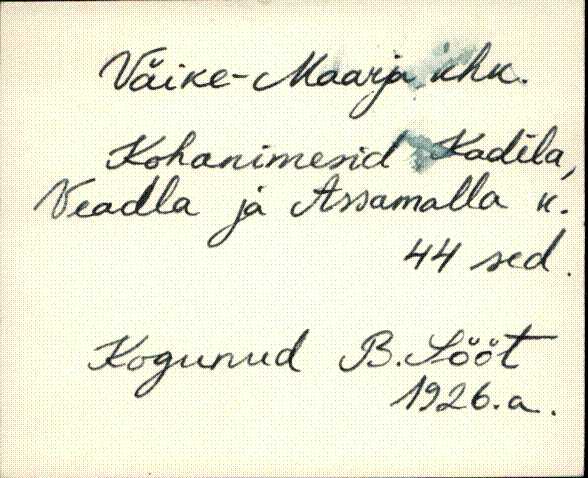 Väike-Maarja khk.
Kohanimesid Kadila,
Veadla ja Assamalla k.
44 sed.
Kogunud B. Sööt
1926.a.